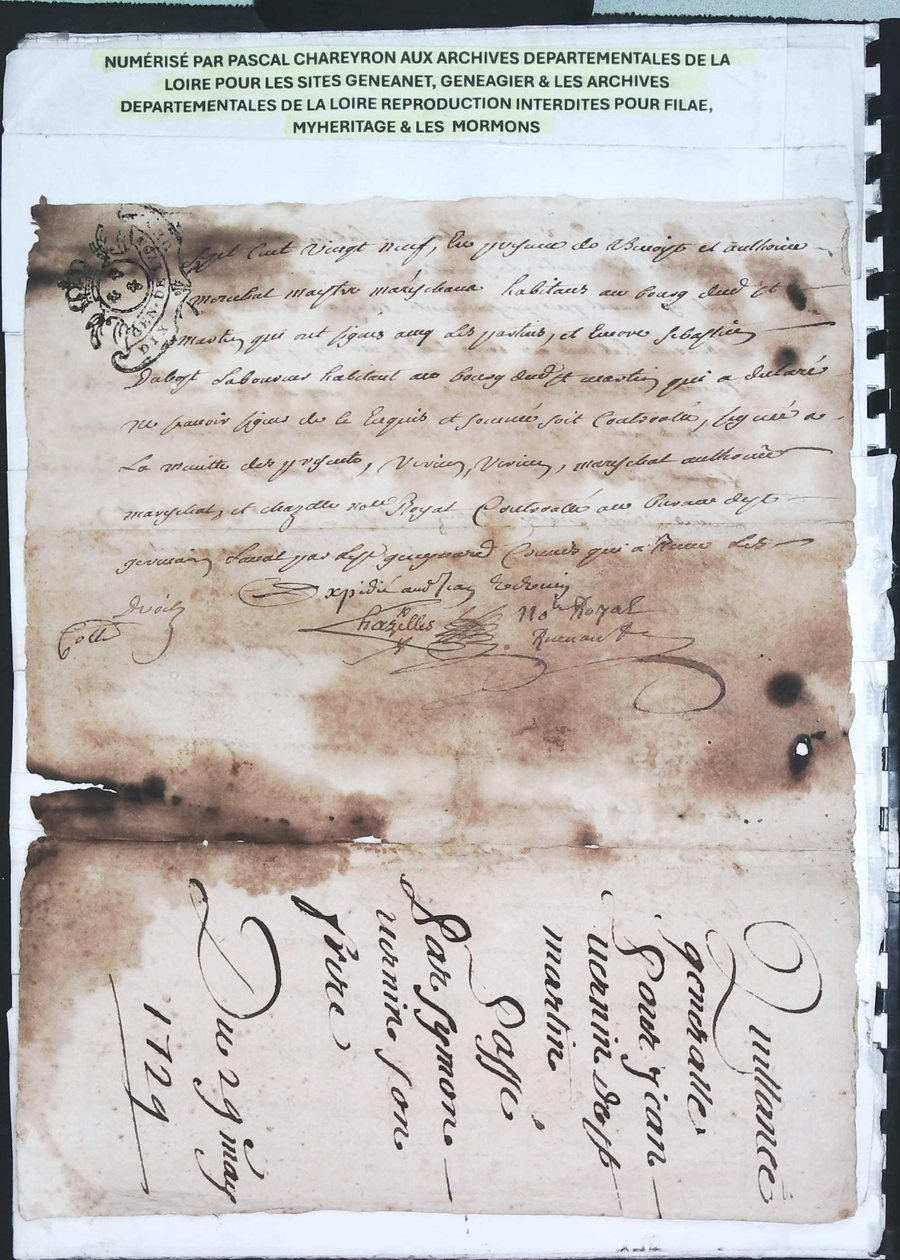 NUMÉRISÉ PAR PASCAL CHAREYRON AUX ARCHIVES DEPARTEMENTALES DE LA
LOIRE POUR LES SITES GENEANET, GENEAGIER & LES ARCHIVES
DEPARTEMENTALES DE LA LOIRE REPRODUCTION INTERDITES POUR FILAE,
MYHERITAGE & LES MORMONS
GEN. DE
DIX
Sept Cent Vingt neuf, En presence de Benoist et anthoine
mareschal maistre mareschaux habitans au bourg dud st
martin qui ont signes avec les parties, et Encore Sebastien
Laboureur habitant au bourg dud st martin qui a declaré
ne sçavoir signer de ce Enquis et sommé soit Controollé, signée a
La minutte des presentes, Vernin, Vernin, mareschal anthoine
mareschal, et chazelles nore Royal Controollé au bureau de st
germain Laval par Commis qui a les
droits
Expédié aud Jean Vernin
Collné
Chazelles No re Royal
Quittance
generalle
Pour jean
vernin de st
martin
Passé
Par symon
vernin son
frere
Du 29e may
1729